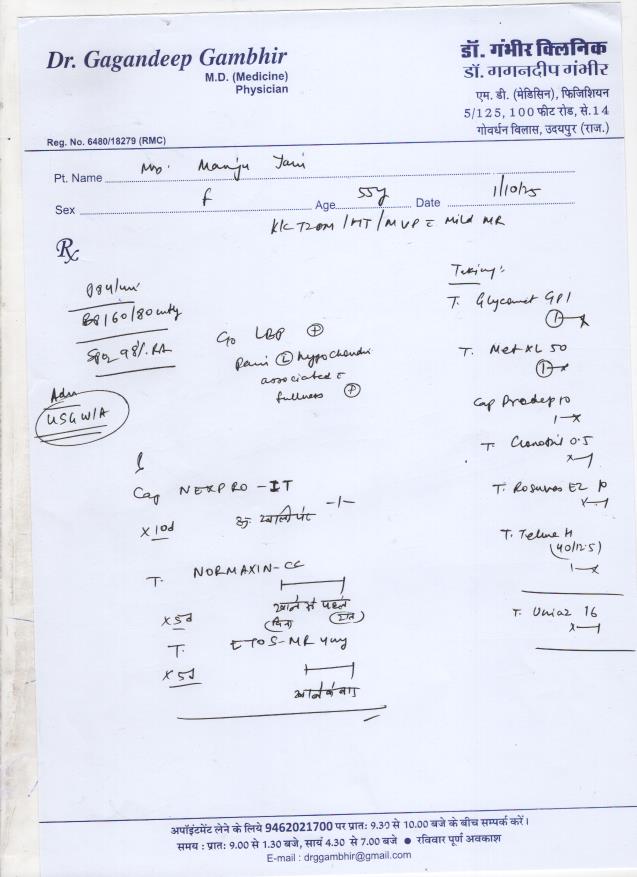 Dr. Gagandeep Gambhir
M.D. (Medicine)
Physician
Reg. No. 6480/18279 (RMC)
डॉ. गंभीर क्लिनिक
डॉ. गगनदीप गंभीर
एम. डी. (मेडिसिन), फिजिशियन
5/125, 100 फीट रोड, से.14
गोवर्धन विलास, उदयपुर (राज.)
Pt. Name Manju
Sex f Age 55y Date 1/10/25
K/C T2DM / HT / MVP c Mild MR
Rx
P84/min
BP 160/80 mmHg
SpO2 98% RA
Adv
USG W/A
C/o LBP +
Pain L hypochondri
associated c
fullness +
Cap NEXPRO-IT
-1-
खाली पेट
x 10d
T. NORMAXIN-CC
खाने से पहले
x 5d
T. ETOS-MR 4mg
x 5d
खाने के बाद
Taking:
T. Glycomet GP1
1-x
T. Met XL 50
1-x
Cap Pradep 10
1-x
T. Clonotril 0.5
x-1
T. Rosuvas EZ 10
x-1
T. Telma H
(40/12.5)
1-x
T. 16
x-1
अपॉइंटमेंट लेने के लिये 9462021700 पर प्रातः 9.30 से 10.00 बजे के बीच सम्पर्क करें।
समय : प्रातः 9.00 से 1.30 बजे, सायं 4.30 से 7.00 बजे ● रविवार पूर्ण अवकाश
E-mail : drggambhir@gmail.com